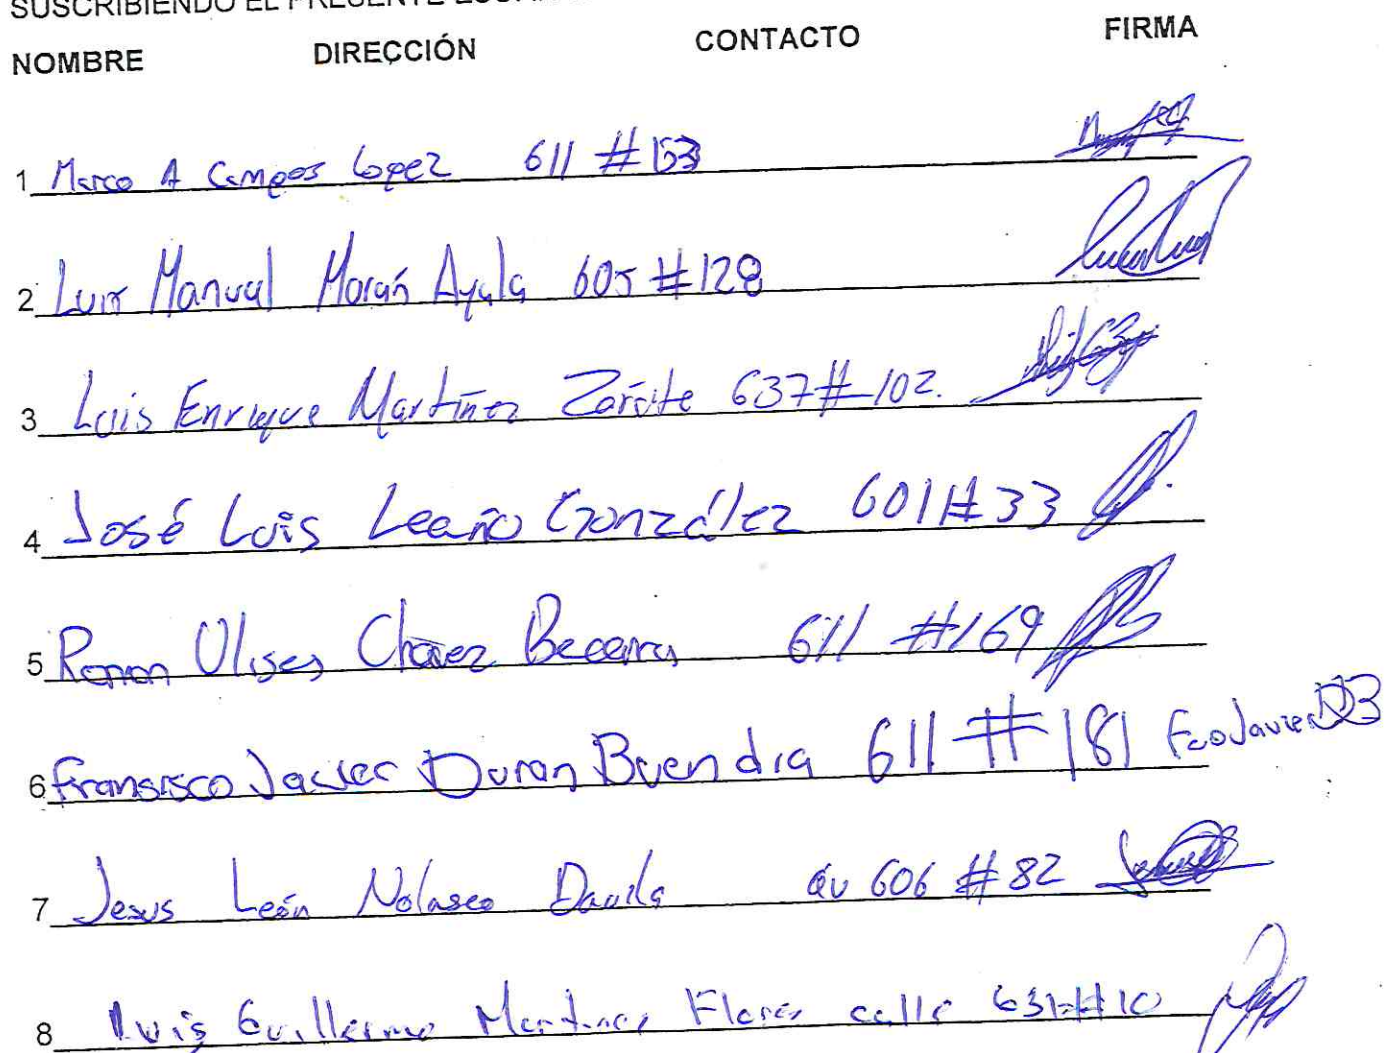 SUSCRIBIENDO EL PRESENTE
NOMBRE DIRECCIÓN CONTACTO FIRMA
1 Marco A Campos Lopez 611 #153
2 Luis Manual Morán Ayala 605 #128
3 Luis Enrique Martínez Zárate 637 #102.
4 José Luis Leaño González 601 #33
5 Ramon Ulises Chavez Becerra 611 #169
6 Fransisco Javier Duran Buendia 611 #181 Fco Javier DB
7 Jesus León Nolasco Davila av 606 #82
8 Luis Guillermo Martinez Flores calle 631 #10